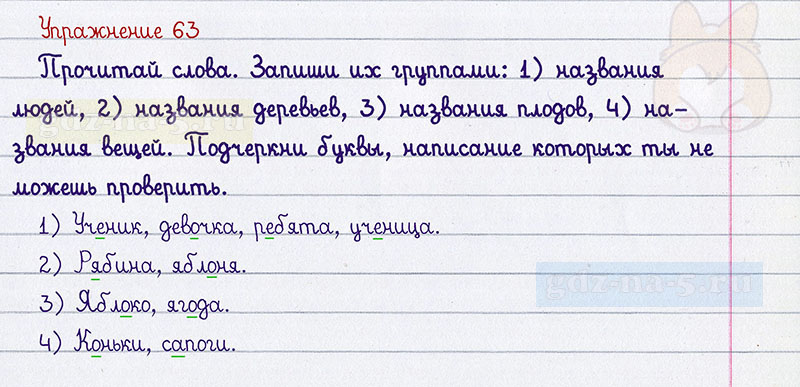 Упражнение 63
Прочитай слова. Запиши их группами: 1) названия
людей, 2) названия деревьев, 3) названия плодов, 4) на-
звания вещей. Подчеркни буквы, написание которых ты не
можешь проверить.
1) Ученик, девочка, ребята, ученица.
2) Рябина, яблоня.
3) Яблоко, ягода.
4) Коньки, сапоги.
gdz-na-5.ru
gdz-na-5.ru